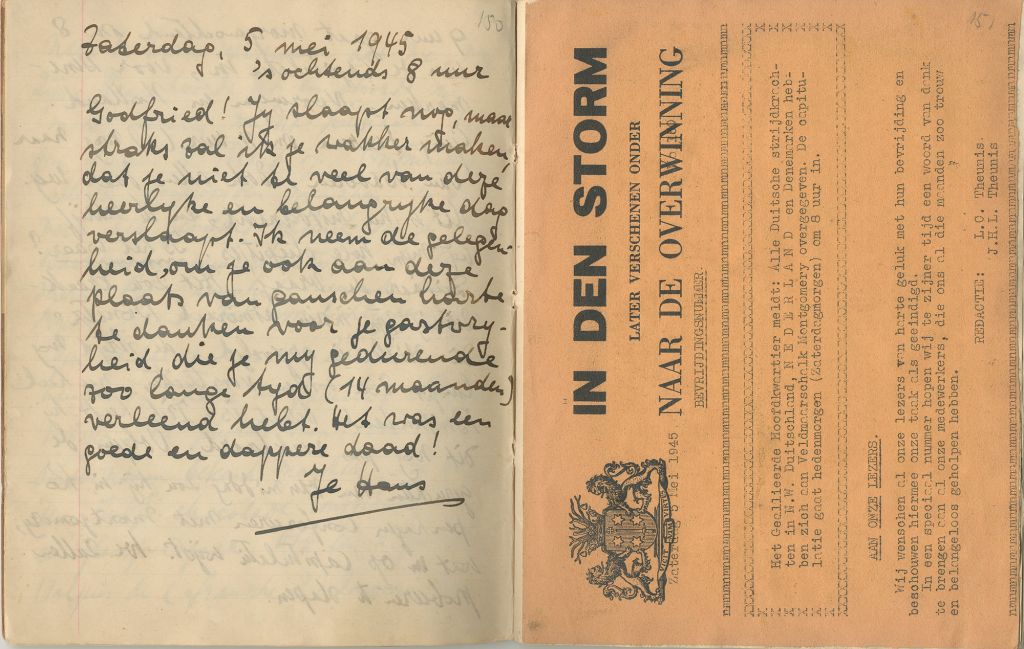 150
Zaterdag, 5 mei 1945
's ochtends 8 uur
Godfried! Jy slaapt nog, maar
straks zal ik je wakker maken
dat je niet te veel van deze
heerlyke en belangryke dag
verslaapt. Ik neem de gelegen-
heid, om je ook aan deze
plaats van ganschen harte
te danken voor je gastvry-
heid, die je my gedurende
zoo lange tyd (14 maanden)
verleend hebt. Het was een
goede en dappere daad!
Je Hans
151
IN DEN STORM
LATER VERSCHENEN ONDER
NAAR DE OVERWINNING
BEVRIJDINGSNUMMER.
Zaterdag 5 Mei 1945
Het Geallieerde Hoofdkwartier meldt: Alle Duitsche strijdkrach-
ten in N.W. Duitschland, N E D E R L A N D en Denemarken heb-
ben zich aan Veldmaarschalk Montgomery overgegeven. De capitu-
latie gaat hedenmorgen (Zaterdagmorgen) om 8 uur in.
AAN ONZE LEZERS.
Wij wenschen al onze lezers van harte geluk met hun bevrijding en
beschouwen hiermee onze taak als geeindigd.
In een speciaal nummer hopen wij te zijner tijd een woord van dank
te brengen aan al onze medewerkers, die ons al die maanden zoo trouw
en belangeloos geholpen hebben.
REDACTIE: L.C. Theunis.
J.H.L. Theunis